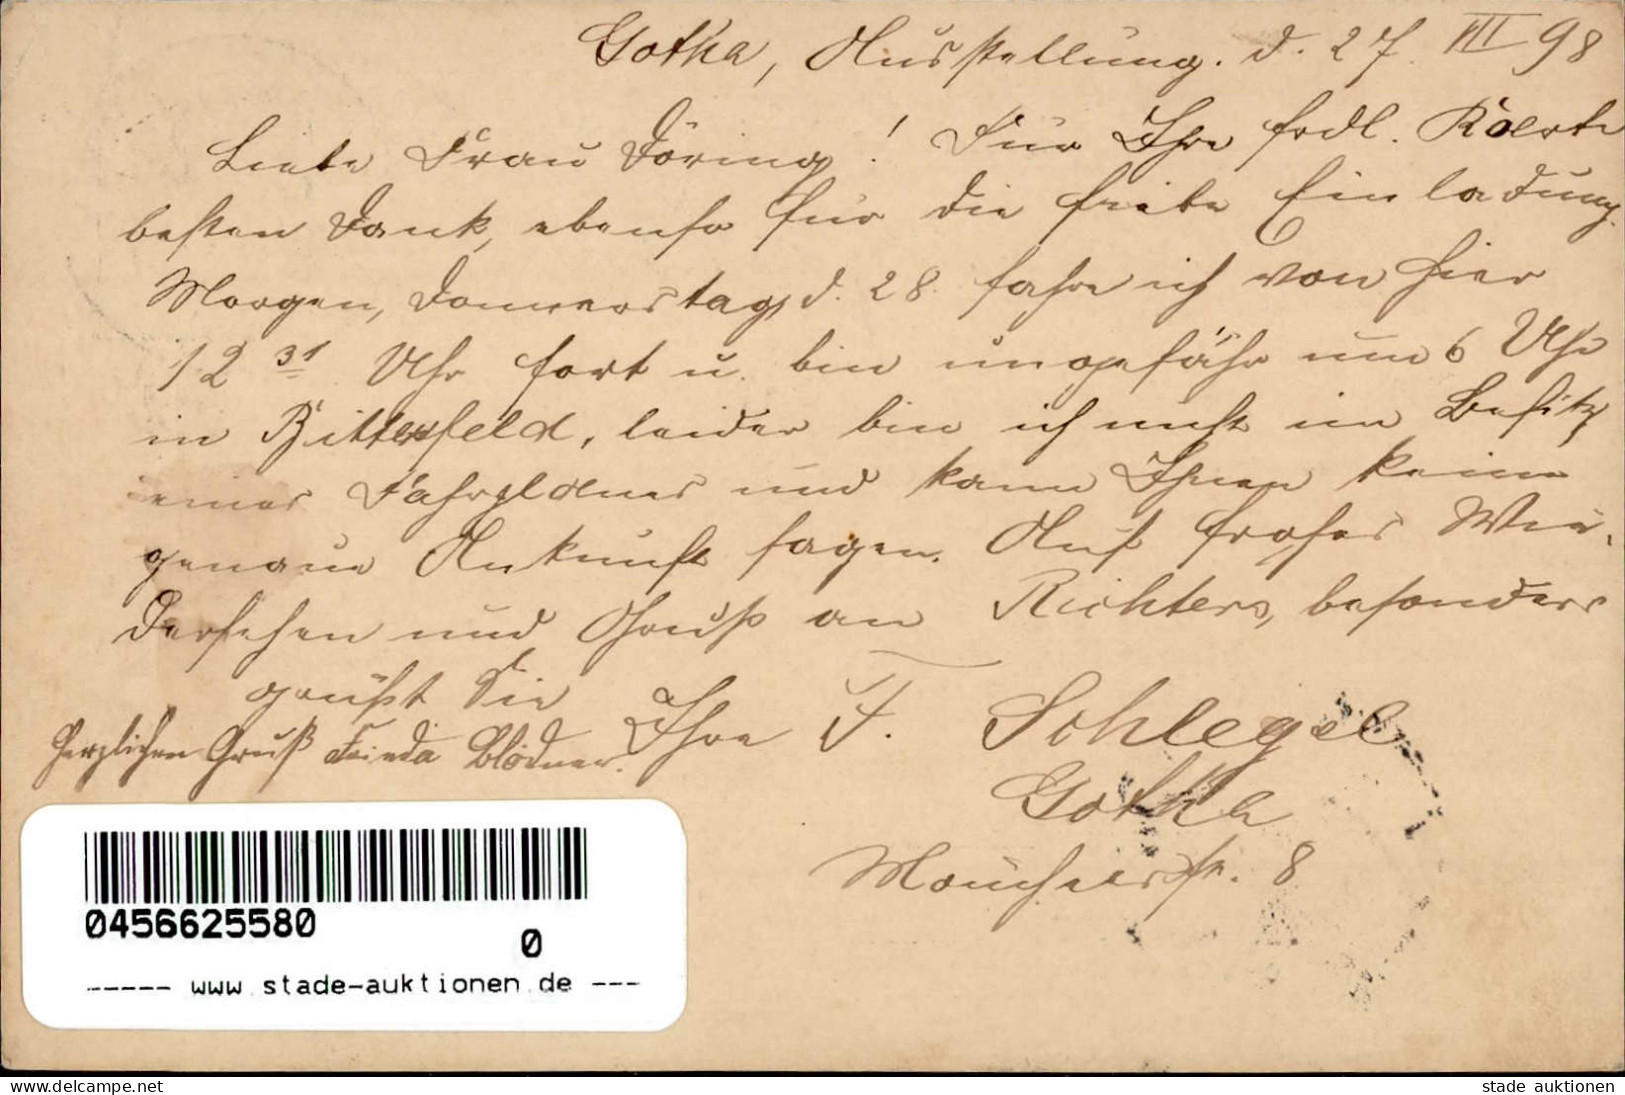 Gotha, Ausstellung. d. 27. VII 98
Liebe Frau Döring! Für Ihre frdl. Karte
besten Dank, ebenso für die liebe Einladung.
Morgen, Donnerstag d. 28. fahre ich von hier
12 31 Uhr fort u. bin ungefähr um 6 Uhr
in Bitterfeld, leider bin ich nicht im Besitz
eines Fahrplanes und kann Ihnen keine
genaue Ankunft sagen. Auf frohes Wie-
dersehen und Gruß an Richters, besonders
grüßt Sie
Ihre F. Schlegel
Herzlichen Gruß Frieda Blödner.
Gotha
8
0456625580
0
----- www.stade-auktionen.de ---
www.delcampe.net
stade auktionen